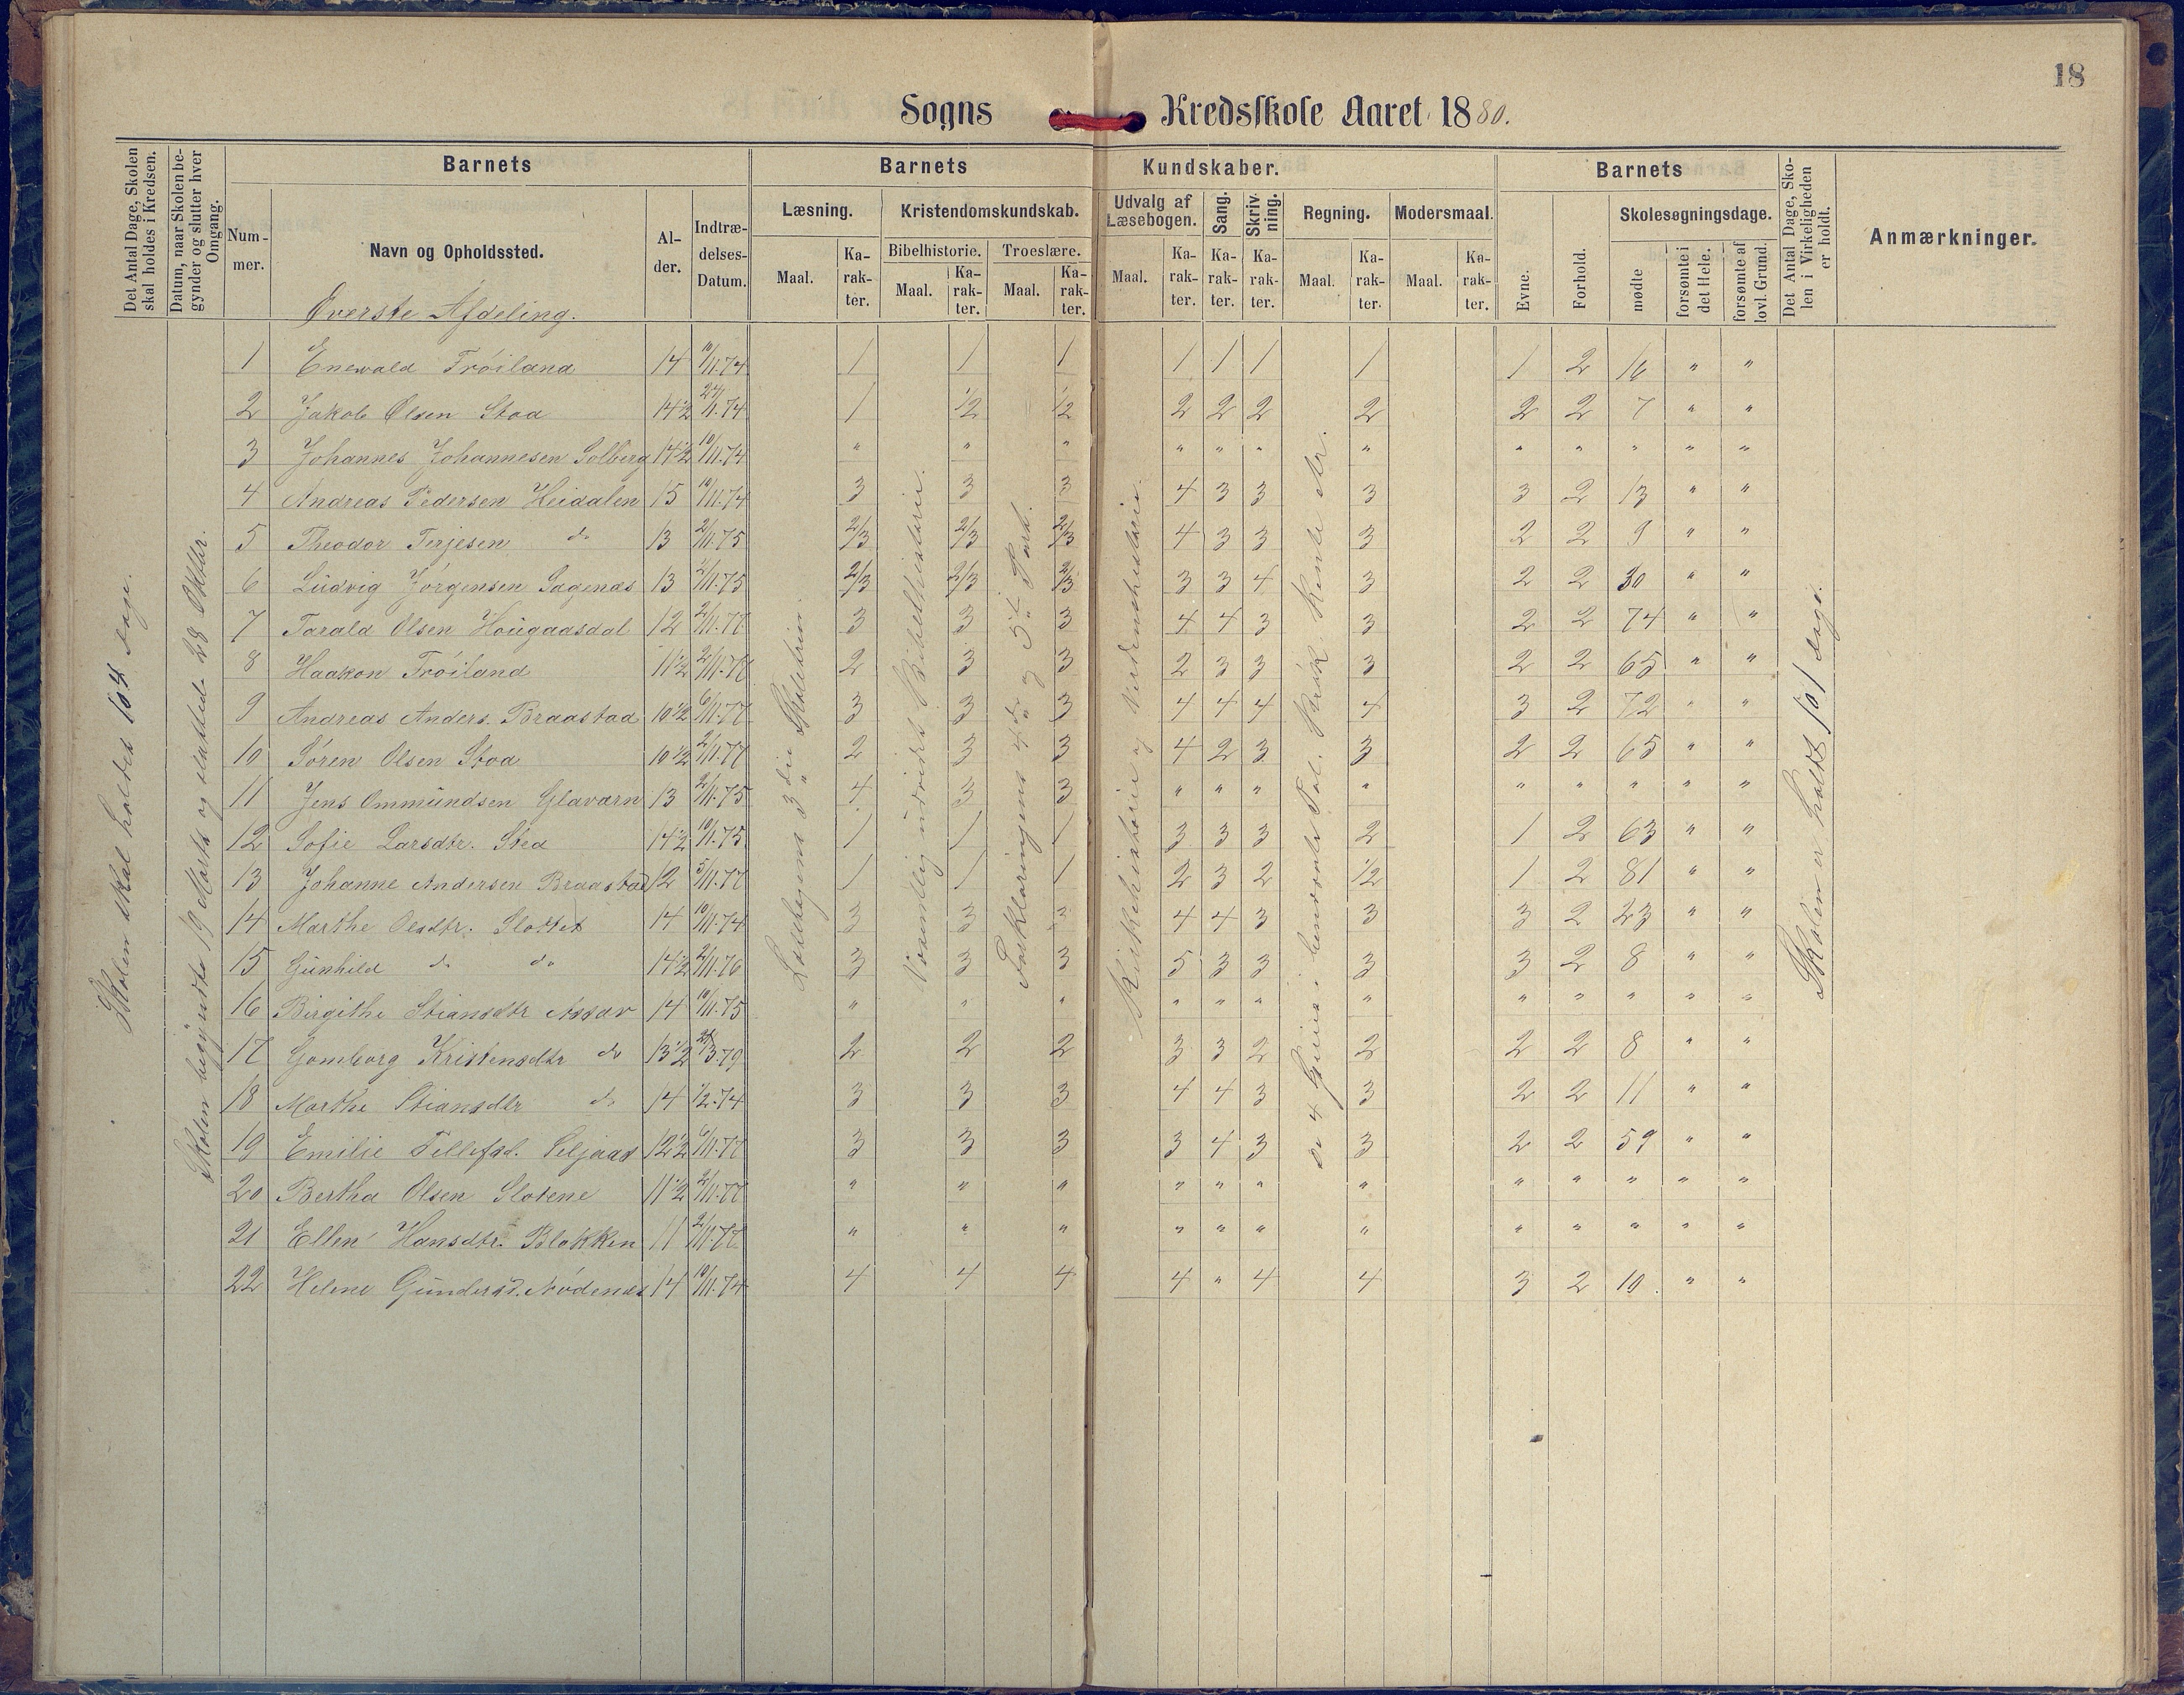 18
Sogns Kredsskole Aaret 1880.
Det Antal Dage, Skolen skal holdes i Kredsen.
Datum, naar Skolen begynder og slutter hver Omgang.
Barnets
Nummer.
Navn og Opholdssted.
Alder.
Indtrædelses-Datum.
Barnets Kundskaber.
Læsning.
Maal.
Karakter.
Kristendomskundskab.
Bibelhistorie.
Maal.
Karakter.
Troeslære.
Maal.
Karakter.
Udvalg af Læsebogen.
Maal.
Karakter.
Sang.
Karakter.
Skrivning.
Karakter.
Regning.
Maal.
Karakter.
Modersmaal.
Maal.
Karakter.
Barnets
Evne.
Forhold.
Skolesøgningsdage.
mødte
forsømte i det Hele.
forsømte af lovl. Grund.
Det Antal Dage, Skolen i Virkeligheden er holdt.
Anmærkninger.
Øverste Afdeling.
Skolen skal holdes 104 Dage.
Skolen begyndte 19 Marts og sluttede 28 Oktbr.
Læsebogens 3die Skoletrin.
Væsentlig udvidet Bibelhistorie.
Forklaringens 4de og 5te Part.
Kirkehistorie og Verdenshistorie.
De 4 Species i benævnte Tal. Prakt. Rente Ar.
Skolen er holdt 101 Dage.
1 Enevald Frøiland 14 10/11.74 1 1 1 1 1 1 1 1 2 16 " "
2 Jakob Olsen Stoa 14½ 24/11.74 1 1/2 1/2 2 2 2 2 2 2 7 " "
3 Johannes Johannesen Solberg 14½ 10/11.74 " " " " " " " " " " " "
4 Andreas Pedersen Heidalen 15 10/11.74 3 3 3 4 3 3 3 3 2 13 " "
5 Theodor Terjesen do 13 2/11.75 2/3 2/3 2/3 4 3 3 3 2 2 9 " "
6 Ludvig Jørgensen Sagenæs 13 2/11.75 2/3 2/3 2/3 3 3 4 3 2 2 30 " "
7 Tarald Olsen Hougaasdal 12 2/11.77 3 3 3 4 4 3 3 2 2 74 " "
8 Haakon Frøiland 11½ 2/11.77 2 3 3 2 3 3 3 2 2 65 " "
9 Andreas Anders. Braastad 10½ 6/11.77 3 3 3 4 4 4 4 3 2 72 " "
10 Søren Olsen Stoa 10½ 2/11.77 2 3 3 4 2 3 3 2 2 65 " "
11 Jens Ommundsen Glavarn 13 2/11.75 4 3 3 " " " " " " " " "
12 Sofie Larsdtr. Stea 14½ 10/11.75 1 1 1 3 3 3 2 1 2 63 " "
13 Johanne Andersen Braastad 12 5/11.77 1 1 1 2 3 2 1/2 1 2 81 " "
14 Marthe Olsdtr. Slottet 14 10/11.74 3 3 3 4 4 3 3 3 2 23 " "
15 Gunhild do do 14½ 2/11.76 3 3 3 5 3 3 3 3 2 8 " "
16 Birgithe Stiansdtr Assæv 14 10/11.75 " " " " " " " " " " " "
17 Gomborg Kristensdtr do 13½ 3.79 2 2 2 3 3 2 2 2 2 8 " "
18 Marthe Stiansdtr do 14 1/2.74 3 3 3 4 4 3 3 2 2 11 " "
19 Emilie Tellefsd. Seljaas 12½ 6/11.77 3 3 3 3 4 3 3 2 2 59 " "
20 Bertha Olsen Slotene 11½ 2/11.77 " " " " " " " " " " " "
21 Ellen Hansdtr. Blekken 11 2/11.77 " " " " " " " " " " " "
22 Helene Gundersd. Nødenæs 14 10/11.74 4 4 4 4 " 4 4 3 2 10 " "